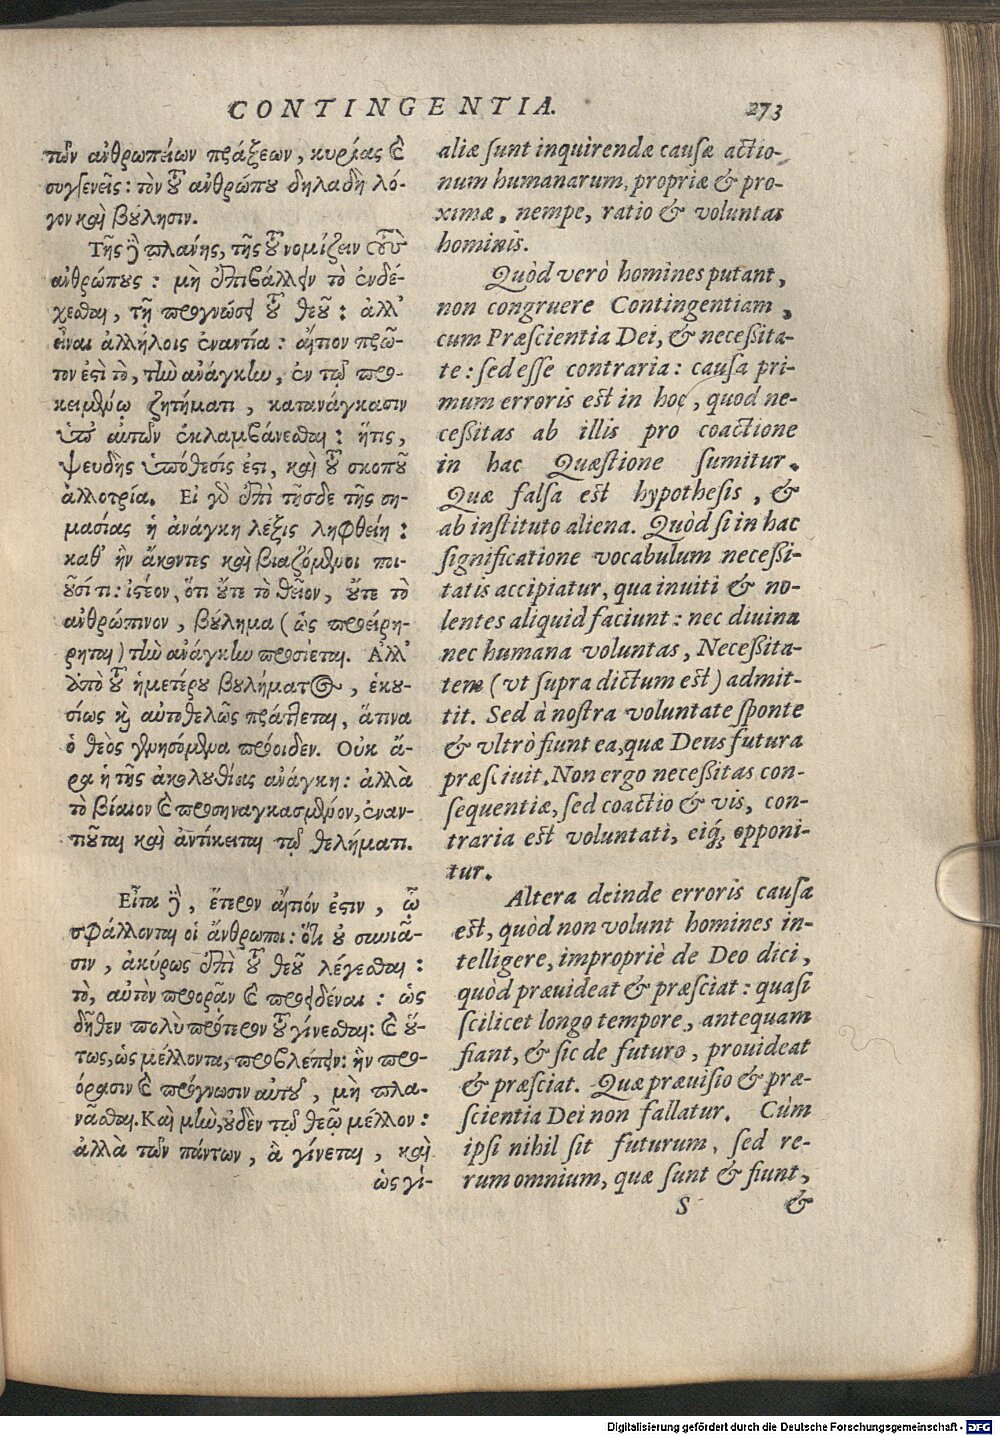 CONTINGENTIA. 273
τῶν ἀνθρωπείων πράξεων, κυρίας καὶ
συγγενεῖς: τὸν τοῦ ἀνθρώπου δηλαδὴ λό-
γον καὶ βούλησιν.
Τῆς δὲ πλάνης, τῆς τοῦ νομίζειν τοὺς
ἀνθρώπους: μὴ ἐπιβάλλειν τὸ ἐνδέ-
χεσθαι, τῇ προγνώσει τοῦ θεοῦ: ἀλλ'
εἶναι ἀλλήλοις ἐναντία: αἴτιον πρῶ-
τον ἐστὶ τὸ, τὴν ἀνάγκην, ἐν τῷ προ-
κειμένῳ ζητήματι, κατανάγκασιν
ὑπ' αὐτῶν ἐκλαμβάνεσθαι: ἥτις,
ψευδὴς ὑπόθεσίς ἐστι, καὶ τοῦ σκοποῦ
ἀλλοτρία. Εἰ γὰρ ἐπὶ τῆσδε τῆς ση-
μασίας ἡ ἀνάγκη λέξις ληφθείη:
καθ' ἣν ἄκοντες καὶ βιαζόμενοι ποι-
οῦσί τι: ἰστέον, ὅτι οὔτε τὸ θεῖον, οὔτε τὸ
ἀνθρώπινον, βούλημα (ὡς προείρη-
ρηται) τὴν ἀνάγκην προσίεται. Ἀλλ'
ἀπὸ τοῦ ἡμετέρου βουλήματος, ἑκου-
σίως καὶ αὐτοθελῶς πράττεται, ἅτινα
ὁ θεὸς γενησόμενα πρόοιδεν. Οὐκ ἄ-
ρα ἡ τῆς ἀκολουθίας ἀνάγκη: ἀλλὰ
τὸ βίαιον καὶ προσηναγκασμένον, ἐναν-
τιοῦται καὶ ἀντίκειται τῷ θελήματι.
Εἶτα δὲ, ἕτερον αἴτιόν ἐστιν, ᾧ
σφάλλονται οἱ ἄνθρωποι: ὅτι οὐ συνιᾶ-
σιν, ἀκύρως ἐπὶ τοῦ θεοῦ λέγεσθαι:
τὸ, αὐτὸν προορᾶν καὶ προειδέναι: ὡς
δῆθεν πολὺ πρότερον τοῦ γίνεσθαι: καὶ οὕ-
τως, ὡς μέλλοντα, προβλέπειν: ἣν προ-
όρασιν καὶ πρόγνωσιν αὐτοῦ, μὴ πλα-
νᾶσθαι. Καὶ μὴν, οὐδὲν τῷ θεῷ μέλλον:
ἀλλὰ τῶν πάντων, ἃ γίνεται, καὶ
ὡς γί-
aliæ sunt inquirendæ causæ actio-
num humanarum, propriæ & pro-
ximæ, nempe, ratio & voluntas
hominis.
Quòd verò homines putant,
non congruere Contingentiam,
cum Præscientia Dei, & necessita-
te: sed esse contraria: causa pri-
mum erroris est in hoc, quòd ne-
cessitas ab illis pro coactione
in hac Quæstione sumitur.
Quæ falsa est hypothesis, &
ab instituto aliena. Quòd si in hac
significatione vocabulum necessi-
tatis accipiatur, qua inuiti & no-
lentes aliquid faciunt: nec diuina
nec humana voluntas, Necessita-
tem (vt supra dictum est) admit-
tit. Sed à nostra voluntate sponte
& vltrò fiunt ea, quæ Deus futura
præsciuit. Non ergo necessitas con-
sequentiæ, sed coactio & vis, con-
traria est voluntati, eiq́; opponi-
tur.
Altera deinde erroris causa
est, quòd non volunt homines in-
telligere, impropriè de Deo dici,
quòd præuideat & præsciat: quasi
scilicet longo tempore, antequam
fiant, & sic de futuro, prouideat
& præsciat. Quæ præuisio & præ-
scientia Dei non fallatur. Cùm
ipsi nihil sit futurum, sed re-
rum omnium, quæ sunt & fiunt,
S &
Digitalisierung gefördert durch die Deutsche Forschungsgemeinschaft - DFG